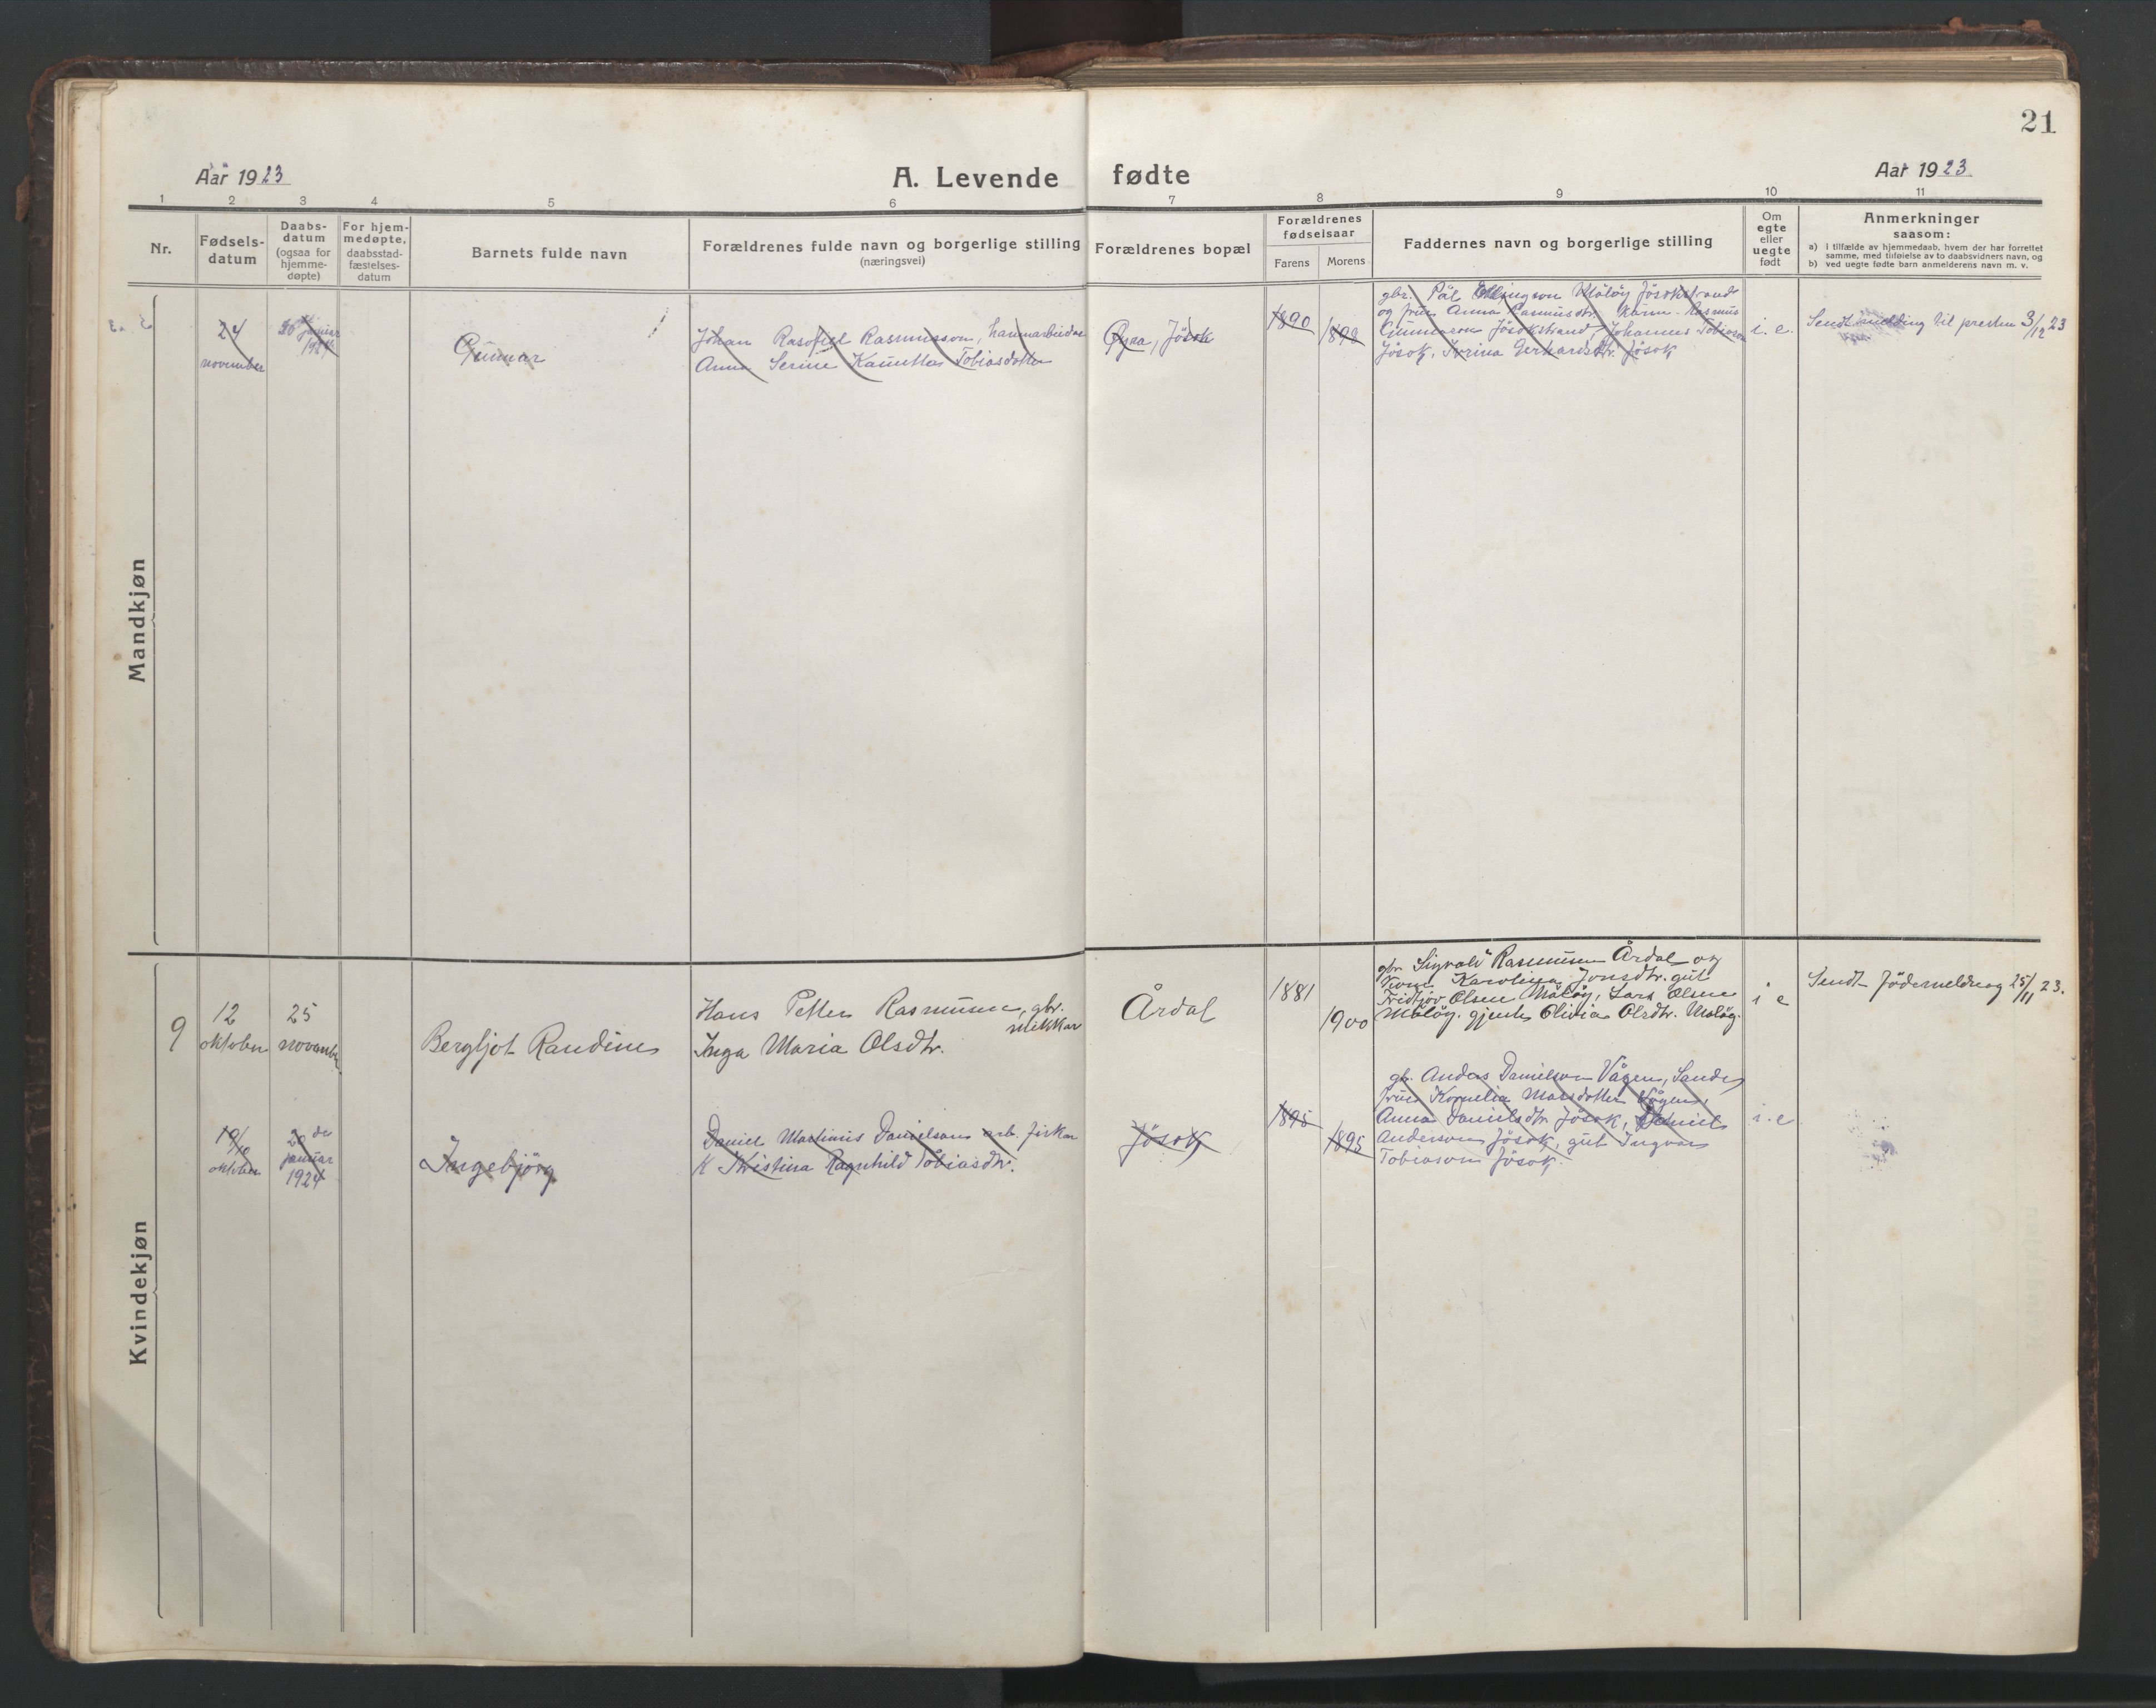 21
Aar 1923
A. Levende fødte
Aar 1923.
1 2 3 4 5 6 7 8 9 10 11
Nr.
Fødsels-
datum
Daabs-
datum
(ogsaa for
hjemme-
døpte)
For hjem-
medøpte,
daabsstad-
fæstelses-
datum
Barnets fulde navn
Forældrenes fulde navn og borgerlige stilling
(næringsvei)
Forældrenes bopæl
Forældrenes
fødselsaar
Farens
Morens
Faddernes navn og borgerlige stilling
Om
egte
eller
uegte
født
Anmerkninger
saasom:
a) i tilfælde av hjemmedaab, hvem der har forrettet
samme, med tilføielse av to daabsvidners navn, og
b) ved uegte fødte barn anmelderens navn m. v.
Mandkjøn
24
november
januar
1924
Gunnar
Johan Rasmusson,
Anna Serine Tobiasdotter
Øyra, Jösok
1890
gbr. Pål Måløy Jösokstrand
og frue Anna Rasmusdtr. Rasmus
Gunnarson Jösokstrand, Johannes Tobiasson
Jösok, Gerhardsdtr. Jösok
i. e.
Sendt melding til presten 3/12 23
Kvindekjøn
9
12
oktober
25
november
Bergljot Randine
Hans Petter Rasmussen, gbr.
Inga Maria Olsdtr.
Årdal
1881
1900
gbr. Sigvald Rasmussen Årdal og
Karolina Jonsdtr. gut
Fridtjov Olsen Måløy, Lars Olsen
Måløy. gjente Olivia Olsdtr. Måløy.
i e
Sendt födemelding 25/11 23.
19/10
oktober
20 de
januar
1924
Ingebjörg
Daniel Martinus Danielson arb. fiskar
K Kristina Ragnhild Tobiasdtr.
Jösok
1895
1895
gbr. Anders Danielson Vågen, Sande,
frue Kornelia Vågen,
Anna Danielsdtr Jösok, Daniel
Anderson Jösok, gut Ingvar
Tobiason Jösok.
i. e